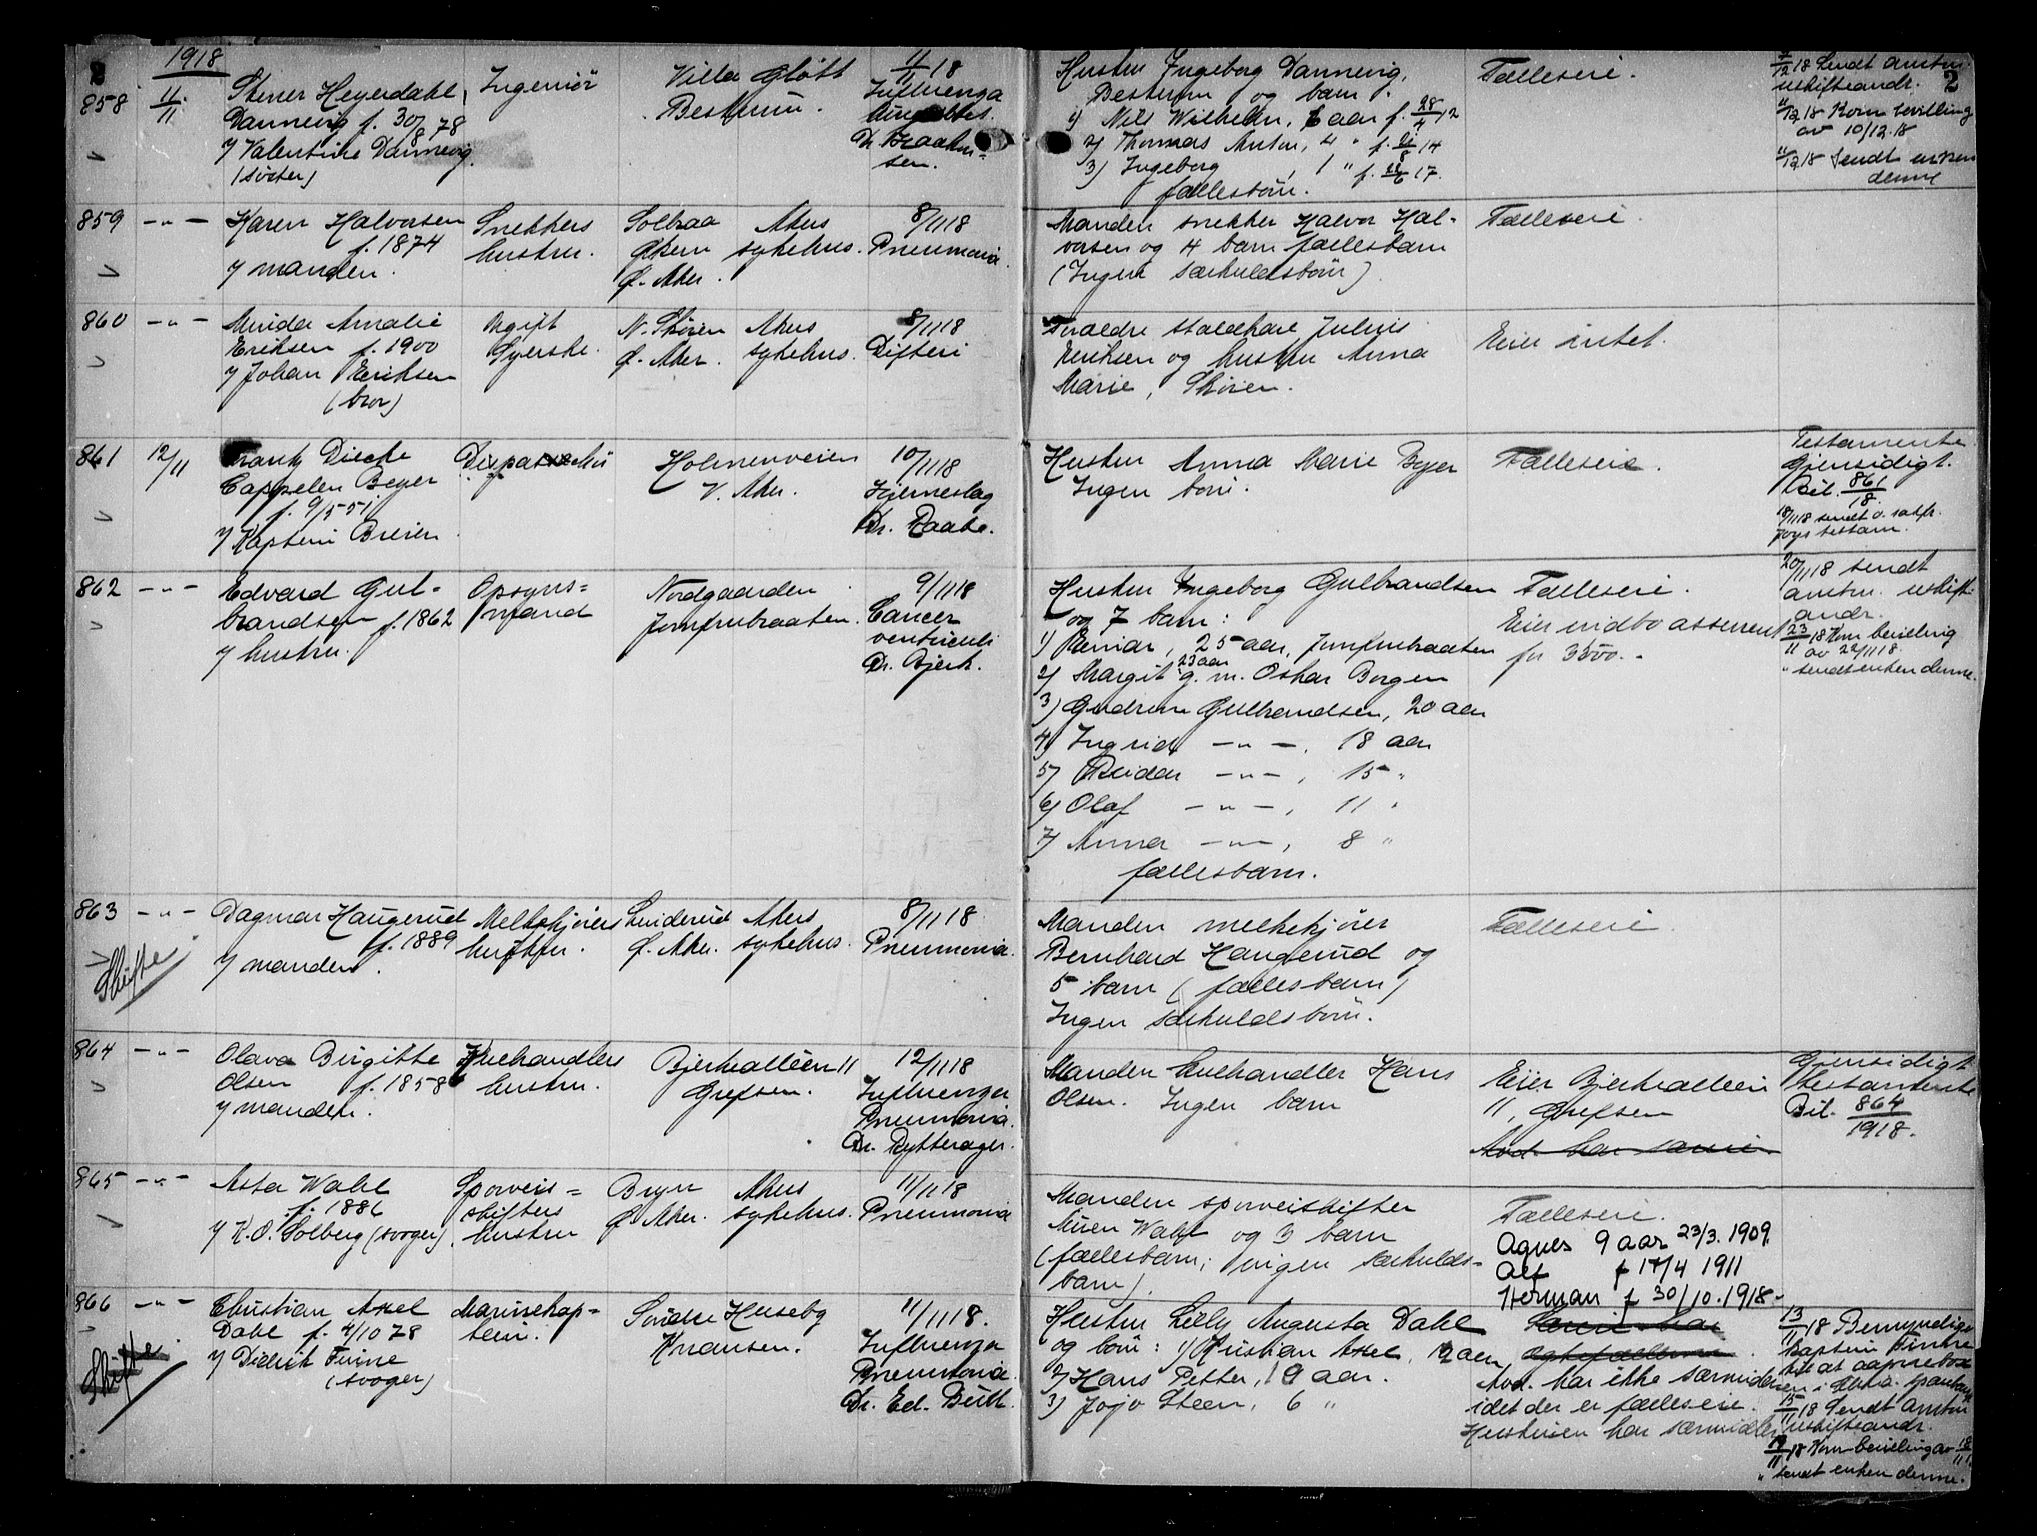 2
1918
858 11/11 Stener Heyerdahl Ingeniør Villa Gløtt 11/11 18
Dannevig f. 30/8 78 Bestum. Influenza
v/ Valentine Dannevig Dr.
(søster)
Hustru Ingeborg Dannevig, Fælleseie.
Bestum og barn:
1) Nils Wilhelm, 6 aar f. 28/4 12
2) Thomas Anton, 4 " f. /8 14
3) Ingeborg, 1 " f. /6 17.
fællesbørn.
7/12 18 Sendt amtm. 2
uskifteandr.
11/12 18 Kom bevilling
av 10/12 18
11/12 18 Sendt enken
denne
859 -"- Karen Halvorsen Snekkers Solbraa Akers 8/11 18
f. 1874 hustru. sykehus. Pneumonia.
v/ manden. Ø. Aker.
Manden snekker Halvor Hal- Fælleseie.
vorsen og 4 barn fællesbarn
(Ingen særkuldsbørn)
860 -"- Amalie Ugift N. Skøien Akers 8/11 18
Eriksen f. 1900 Syerske. Ø. Aker. sykehus. Difteri
v/ Johan Eriksen
(bror)
Forældre Julius Eier intet.
Eriksen og hustru Anna
Marie, Skøien.
861 12/11 Frantz Diecke Dispaschør Holmenveien 10/11 18
Cappelen Beyer V. Aker. Hjerneslag
f. 9/5 51 Dr. Raabe.
v/ Kaptein
Hustru Anna Marie Beyer Fælleseie.
Ingen børn.
Testamente
Gjensidigt.
Bil. 861/18.
18/11 18 sendt
testam.
862 -"- Edvard Gul- Opsyns= Nordgaarden 9/11 18
brandsen f. 1862 mand Jomfrubraaten. Cancer
v/ hustru. ventriculi
Dr. Bjerk.
Hustru Ingeborg Gulbrandsen Fælleseie.
og 7 barn: Eier indbo assurert
1) Reinar, 25 aar, Jomfrubraaten for 3500.-
2) Margit 23 aar g. m. Oskar Borgen
3) Gudrun Gulbrandsen, 20 aar
4) Ingrid -"-, 18 aar
5) Reidar -"-, 15 "
6) Olaf -"-, 11 "
7) Anna -"-, 8 "
fællesbarn.
20/11 18 sendt
amtm. uskift.
andr.
23/11 18 Kom bevilling
av 22/11 18.
" sendt enken denne.
863 -"- Dagmar Haugerud Melkekjørers Linderud Akers 8/11 18
f. 1889 hustru. Ø. Aker. sykehus. Pneumonia.
v/ manden.
Skifte
Manden melkekjører Fælleseie.
Bernhard Haugerud og
5 barn (fællesbarn)
Ingen særkuldsbørn.
864 -"- Olava Birgitte handlers Bjerkealléen 11 12/11 18
Olsen f. 1858 hustru. Grefsen. Influenza
v/ manden. Pneumonia.
Dr. Rytterager.
Manden handler Hans Eier Bjerkealléen
Olsen. Ingen barn 11, Grefsen
Avd. har særeie.
Gjensidigt
testamente
Bil. 864/1918.
865 -"- Asta Wahl Sporveis= Bryn Akers 11/11 18
f. 1886 skifters Ø. Aker. sykehus. Pneumonia
v/ K. O. Solberg (svoger) hustru
Manden sporveisskifter Fælleseie.
Wahl og 3 barn Agnes 9 aar 23/3. 1909.
(fællesbarn; ingen særkulds- Alf f 17/4 1911
barn). Herman f 30/10. 1918.
866 -"- Christian Axel Marinekap= Søndre Huseby 11/11 18.
Dahl f. 4/10 78 tein. Influenza
v/ Didrik (svoger) Pneumonia.
Skifte Dr. Ed. Bull.
Hustru Lilly Augusta Dahl
og børn: 1) Kristian Axel, 12 aar,
2) Hans Petter, 9 aar. Avd. har ikke særmidler
3) Jojo Steen, 6 " idet der er fælleseie.
Hustruen har særmidler
13/11 18 Bemyndiges
Kaptein
at aapne box
15/11 18 Sendt amtm
uskifteandr.
19/11 18 Kom bevilling av 18/11.
" sendt enken denne.